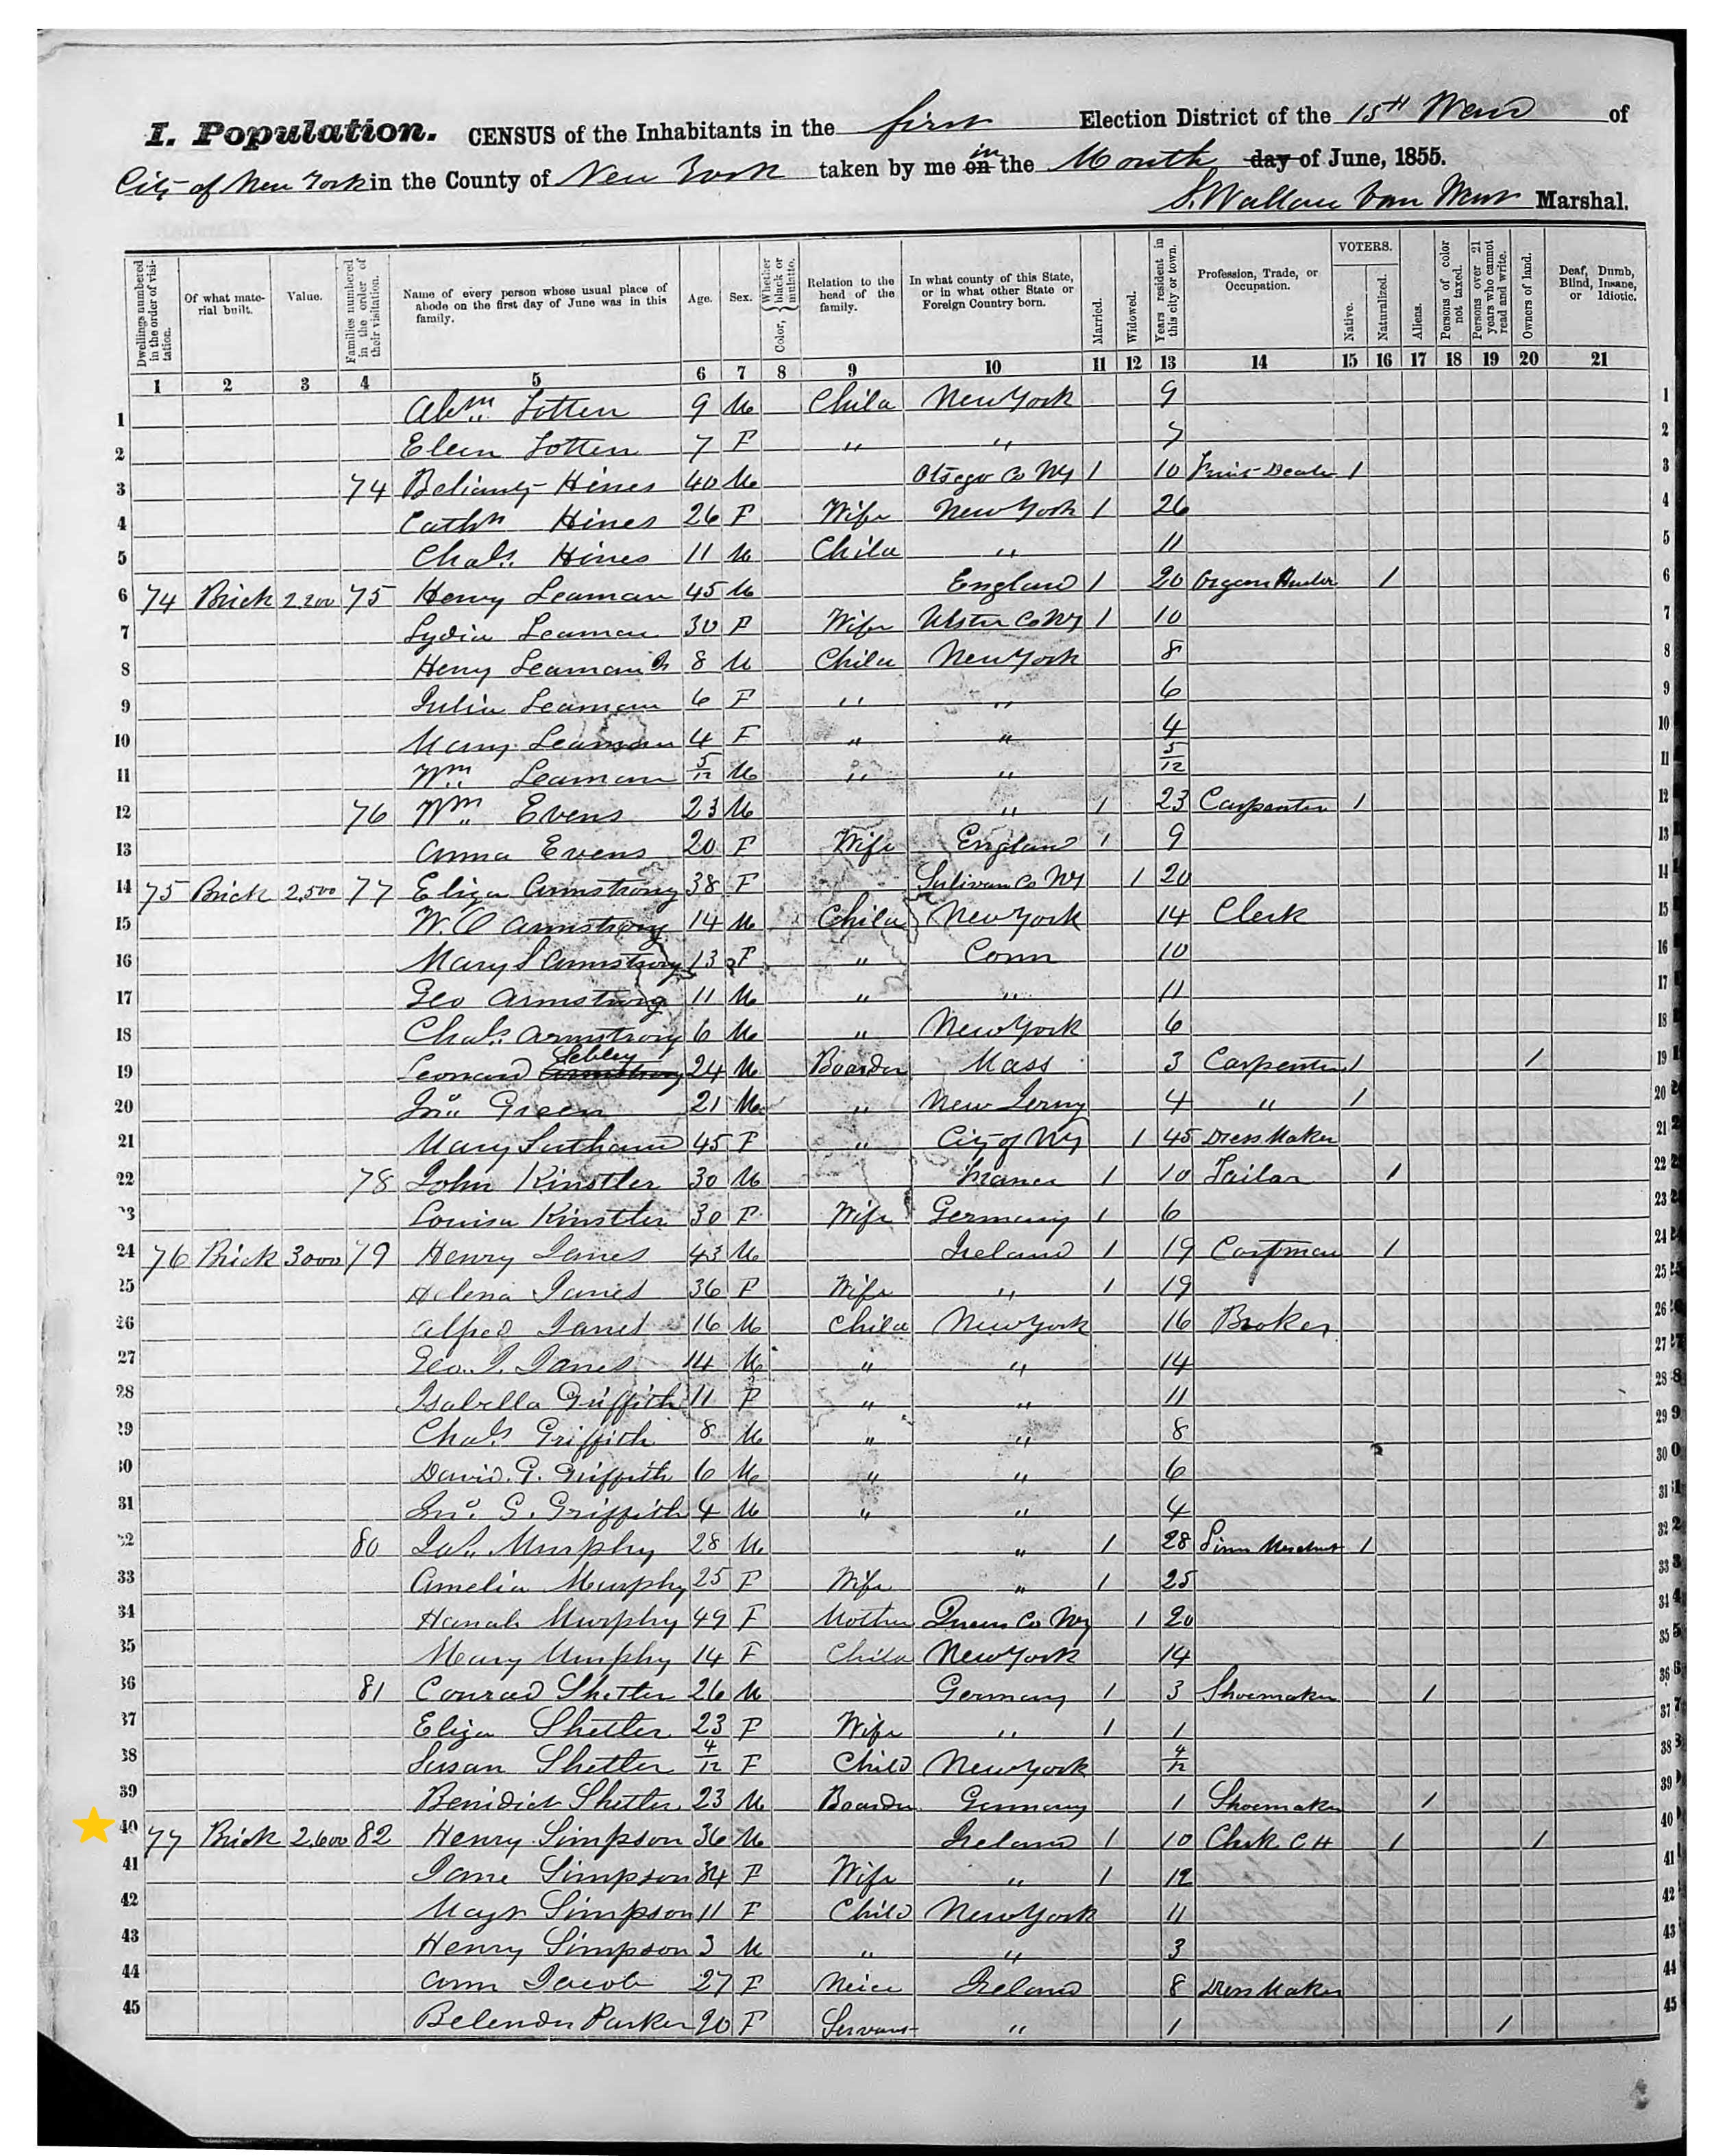 I. Population. CENSUS of the Inhabitants in the first Election District of the 15th Ward of
City of New York in the County of New York taken by me on in the Month day of June, 1855.
S. Wallace Van Marshal.
Dwellings numbered in the order of visitation. Of what material built. Value. Families numbered in the order of their visitation. Name of every person whose usual place of abode on the first day of June was in this family. Age. Sex. Color, { Whether black or mulatto. Relation to the head of the family. In what county of this State, or in what other State or Foreign Country born. Married. Widowed. Years resident in this city or town. Profession, Trade, or Occupation. VOTERS. Native. Naturalized. Aliens. Persons of color not taxed. Persons over 21 years who cannot read and write. Owners of land. Deaf, Dumb, Blind, Insane, or Idiotic.
1 2 3 4 5 6 7 8 9 10 11 12 13 14 15 16 17 18 19 20 21
1 Abm Totten 9 M Child New York 9 1
2 Elen Totten 7 F " " 7 2
3 74 Hines 40 M Otsego Co NY 1 10 Fruit Dealer 1 3
4 Cathn Hines 26 F Wife New York 1 26 4
5 Chas. Hines 11 M Child " 11 5
6 74 Brick 2,200 75 Henry Leaman 45 M England 1 20 Organ 1 6
7 Lydia Leaman 30 F Wife Ulster Co NY 1 10 7
8 Henry Leaman Jr 8 M Child New York 8 8
9 Julia Leaman 6 F " " 6 9
10 Mary Leaman 4 F " " 4 10
11 Wm Leaman 5/12 M " " 5/12 11
12 76 Wm Evens 23 M " 1 23 Carpenter 1 12
13 Anna Evens 20 F Wife England 1 9 13
14 75 Brick 2,500 77 Eliza Armstrong 38 F Sulivan Co NY 1 20 14
15 W. O Armstrong 14 M Child New York 14 Clerk 15
16 Mary S Armstrong 13 F " Conn 10 16
17 Geo Armstrong 11 M " " 11 17
18 Chas. Armstrong 6 M " New York 6 18
19 Leonard Armstrong Sebley 24 M Boarder Mass 3 Carpenter 1 1 19
20 Jno Green 21 M " New Jersey 4 " 1 20
21 Mary 45 F " City of NY 1 45 Dress Maker 21
22 78 John Kinstler 30 M France 1 10 Tailor 1 22
23 Louisa Kinstler 30 F Wife Germany 1 6 23
24 76 Brick 3000 79 Henry Janes 43 M Ireland 1 19 Cartman 1 24
25 Helena Janes 36 F Wife " 1 19 25
26 Alfred Janes 16 M Child New York 16 Broker 26
27 Geo. J. Janes 14 M " " 14 27
28 Isabella Griffith 11 F " " 11 28
29 Chas Griffith 8 M " " 8 29
30 David. G. Griffith 6 M " " 6 30
31 Jno. G. Griffith 4 M " " 4 31
32 80 Jas. Murphy 28 M " 1 28 Merchant 1 32
33 Amelia Murphy 25 F Wife " 1 25 33
34 Hanah Murphy 49 F Mother Queens Co NY 1 20 34
35 Mary Murphy 14 F Child New York 14 35
36 81 Conrad Shetler 26 M Germany 1 3 Shoemaker 1 36
37 Eliza Shetler 23 F Wife " 1 1 37
38 Susan Shetler 4/12 F Child New York 4/12 38
39 Benidict Shetler 23 M Boarder Germany 1 Shoemaker 1 39
40 77 Brick 2,600 82 Henry Simpson 36 M Ireland 1 10 Clerk C H 1 1 40
41 Jane Simpson 34 F Wife " 1 12 41
42 Simpson 11 F Child New York 11 42
43 Henry Simpson 3 M " " 3 43
44 Ann Jacob 27 F Neice Ireland 8 Dress Maker 44
45 Belender Parker 20 F Servant " 1 1 45